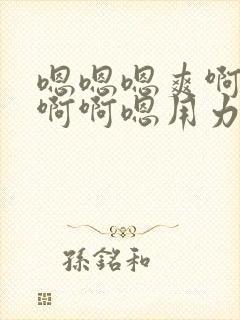 嗯嗯嗯爽啊
啊啊嗯用力
孫銘和